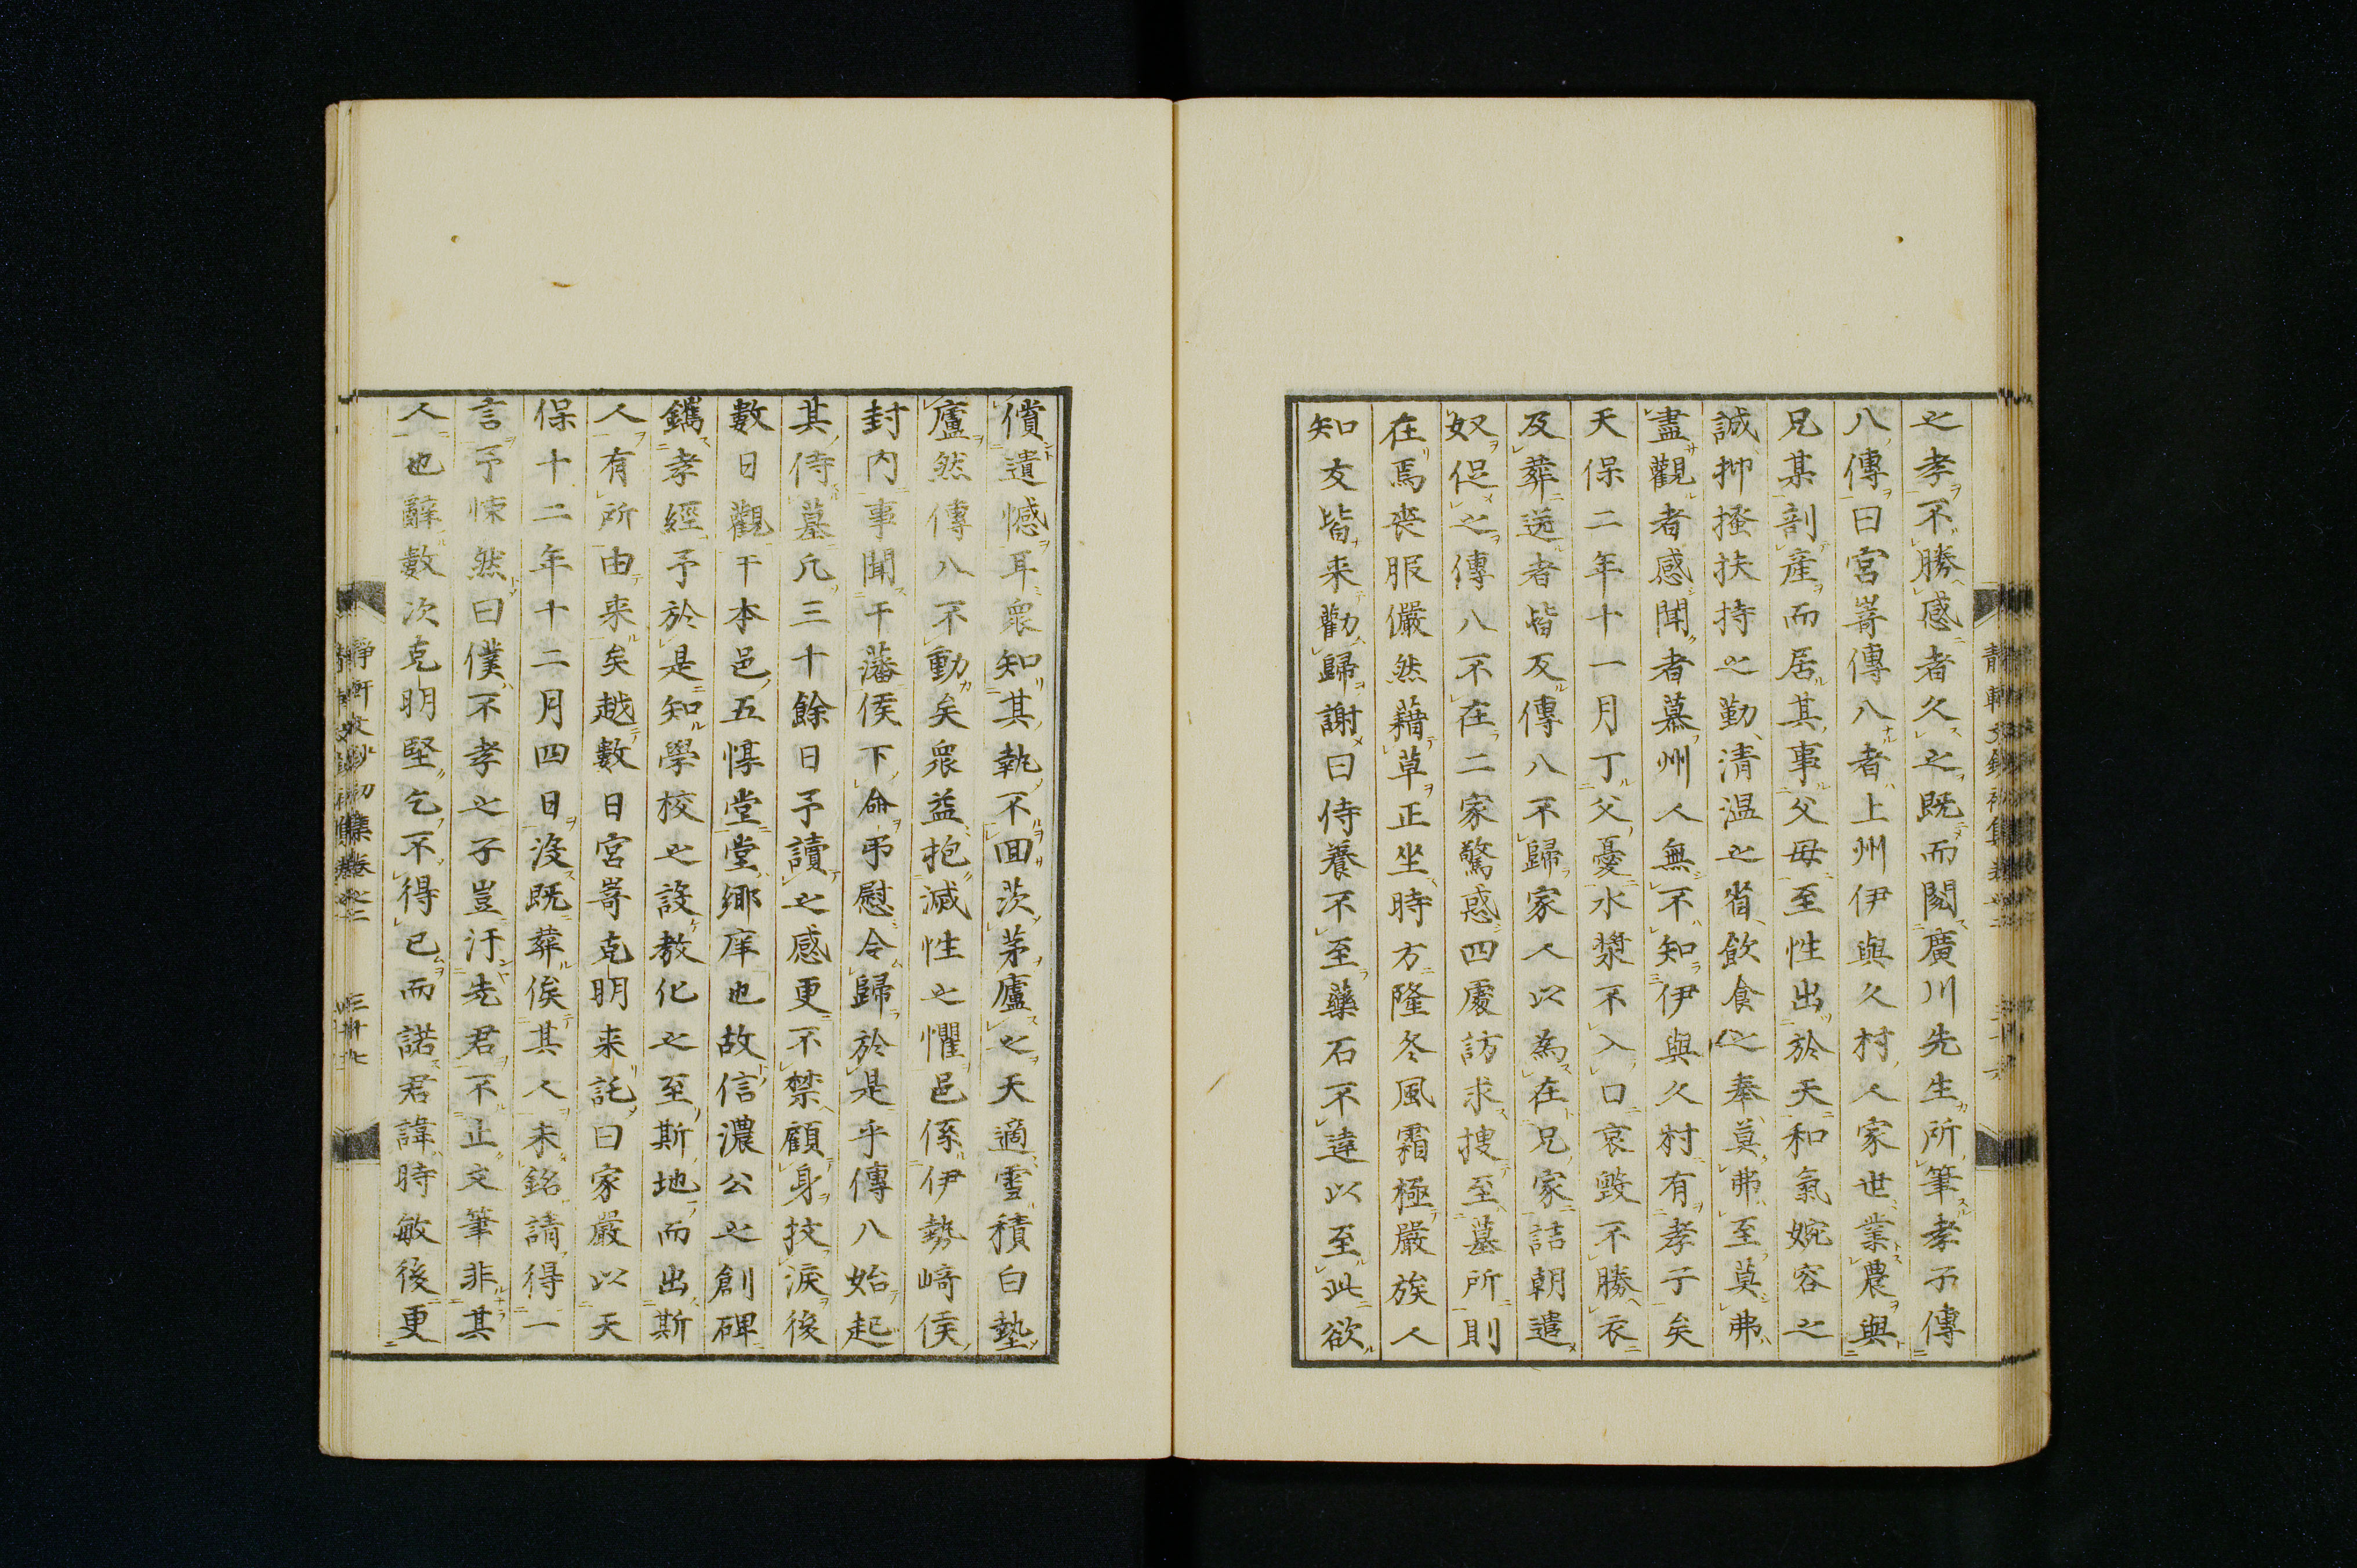 之孝不勝感者久之既而閲廣川先生所筆孝子傳
八傳曰宮嵜傳八者上州伊與久村人家世業農與
兄某剖産而居其事父母至性出於天和氣婉容之
誠抑搔扶持之勤清温之省飲食之奉莫弗至莫弗
盡觀者感聞者慕州人無不知伊與久村有孝子矣
天保二年十一月丁父憂水漿不入口哀毀不勝衣
及葬送者皆反傳八不歸家人以為在兄家詰朝遣
奴促之傳八不在二家驚惑四處訪求搜至墓所則
在焉喪服儼然藉草正坐時方隆冬風霜極嚴族人
知友皆来勸歸謝曰侍養不至藥石不達以至此欲
償遺憾耳衆知其執不回茨茅廬之天適雪積白墊
廬然傳八不動矣衆益抱滅性之懼邑係伊勢﨑侯
封内事聞干藩侯下命弔慰令歸於是乎傳八始起
其侍墓凡三十餘日予讀之感更不禁顧身抆涙後
數日觀干本邑五惇堂堂郷庠也故信濃公之創碑
鐫孝經予於是知學校之設教化之至斯地而出斯
人有所由来矣越數日宮嵜克明来託曰家嚴以天
保十二年十二月四日没既葬俟其人未銘請得一
言予悚然曰僕不孝之子豈汙先君不止文筆非其
人也辭數次克明堅乞不得已而諾君諱時敏後更